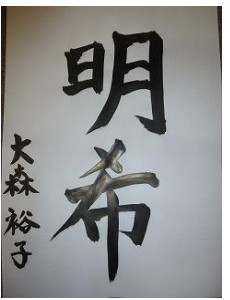 明希
大森裕子